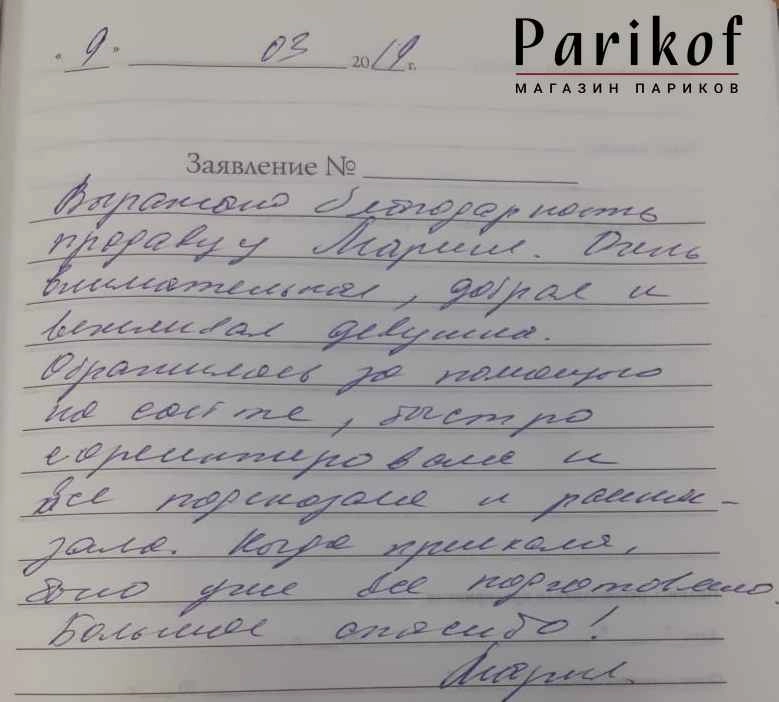 Parikof
МАГАЗИН ПАРИКОВ
" 9 " 03 2019 г.
Заявление №
Выражаю благодарность
продавцу Марии. Очень
внимательная, добрая и
вежливая девушка.
Обратилась за помощью
на сайте, быстро
сориентировала и
все подсказала и расска-
зала. Когда приехала,
было уже все подготовлено.
Большое спасибо!
Мария.